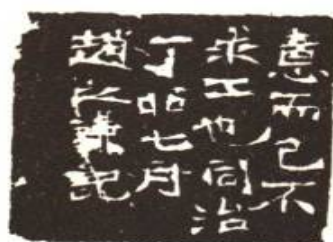 意而已不
求工也同治
丁卯七月
趙之謙記